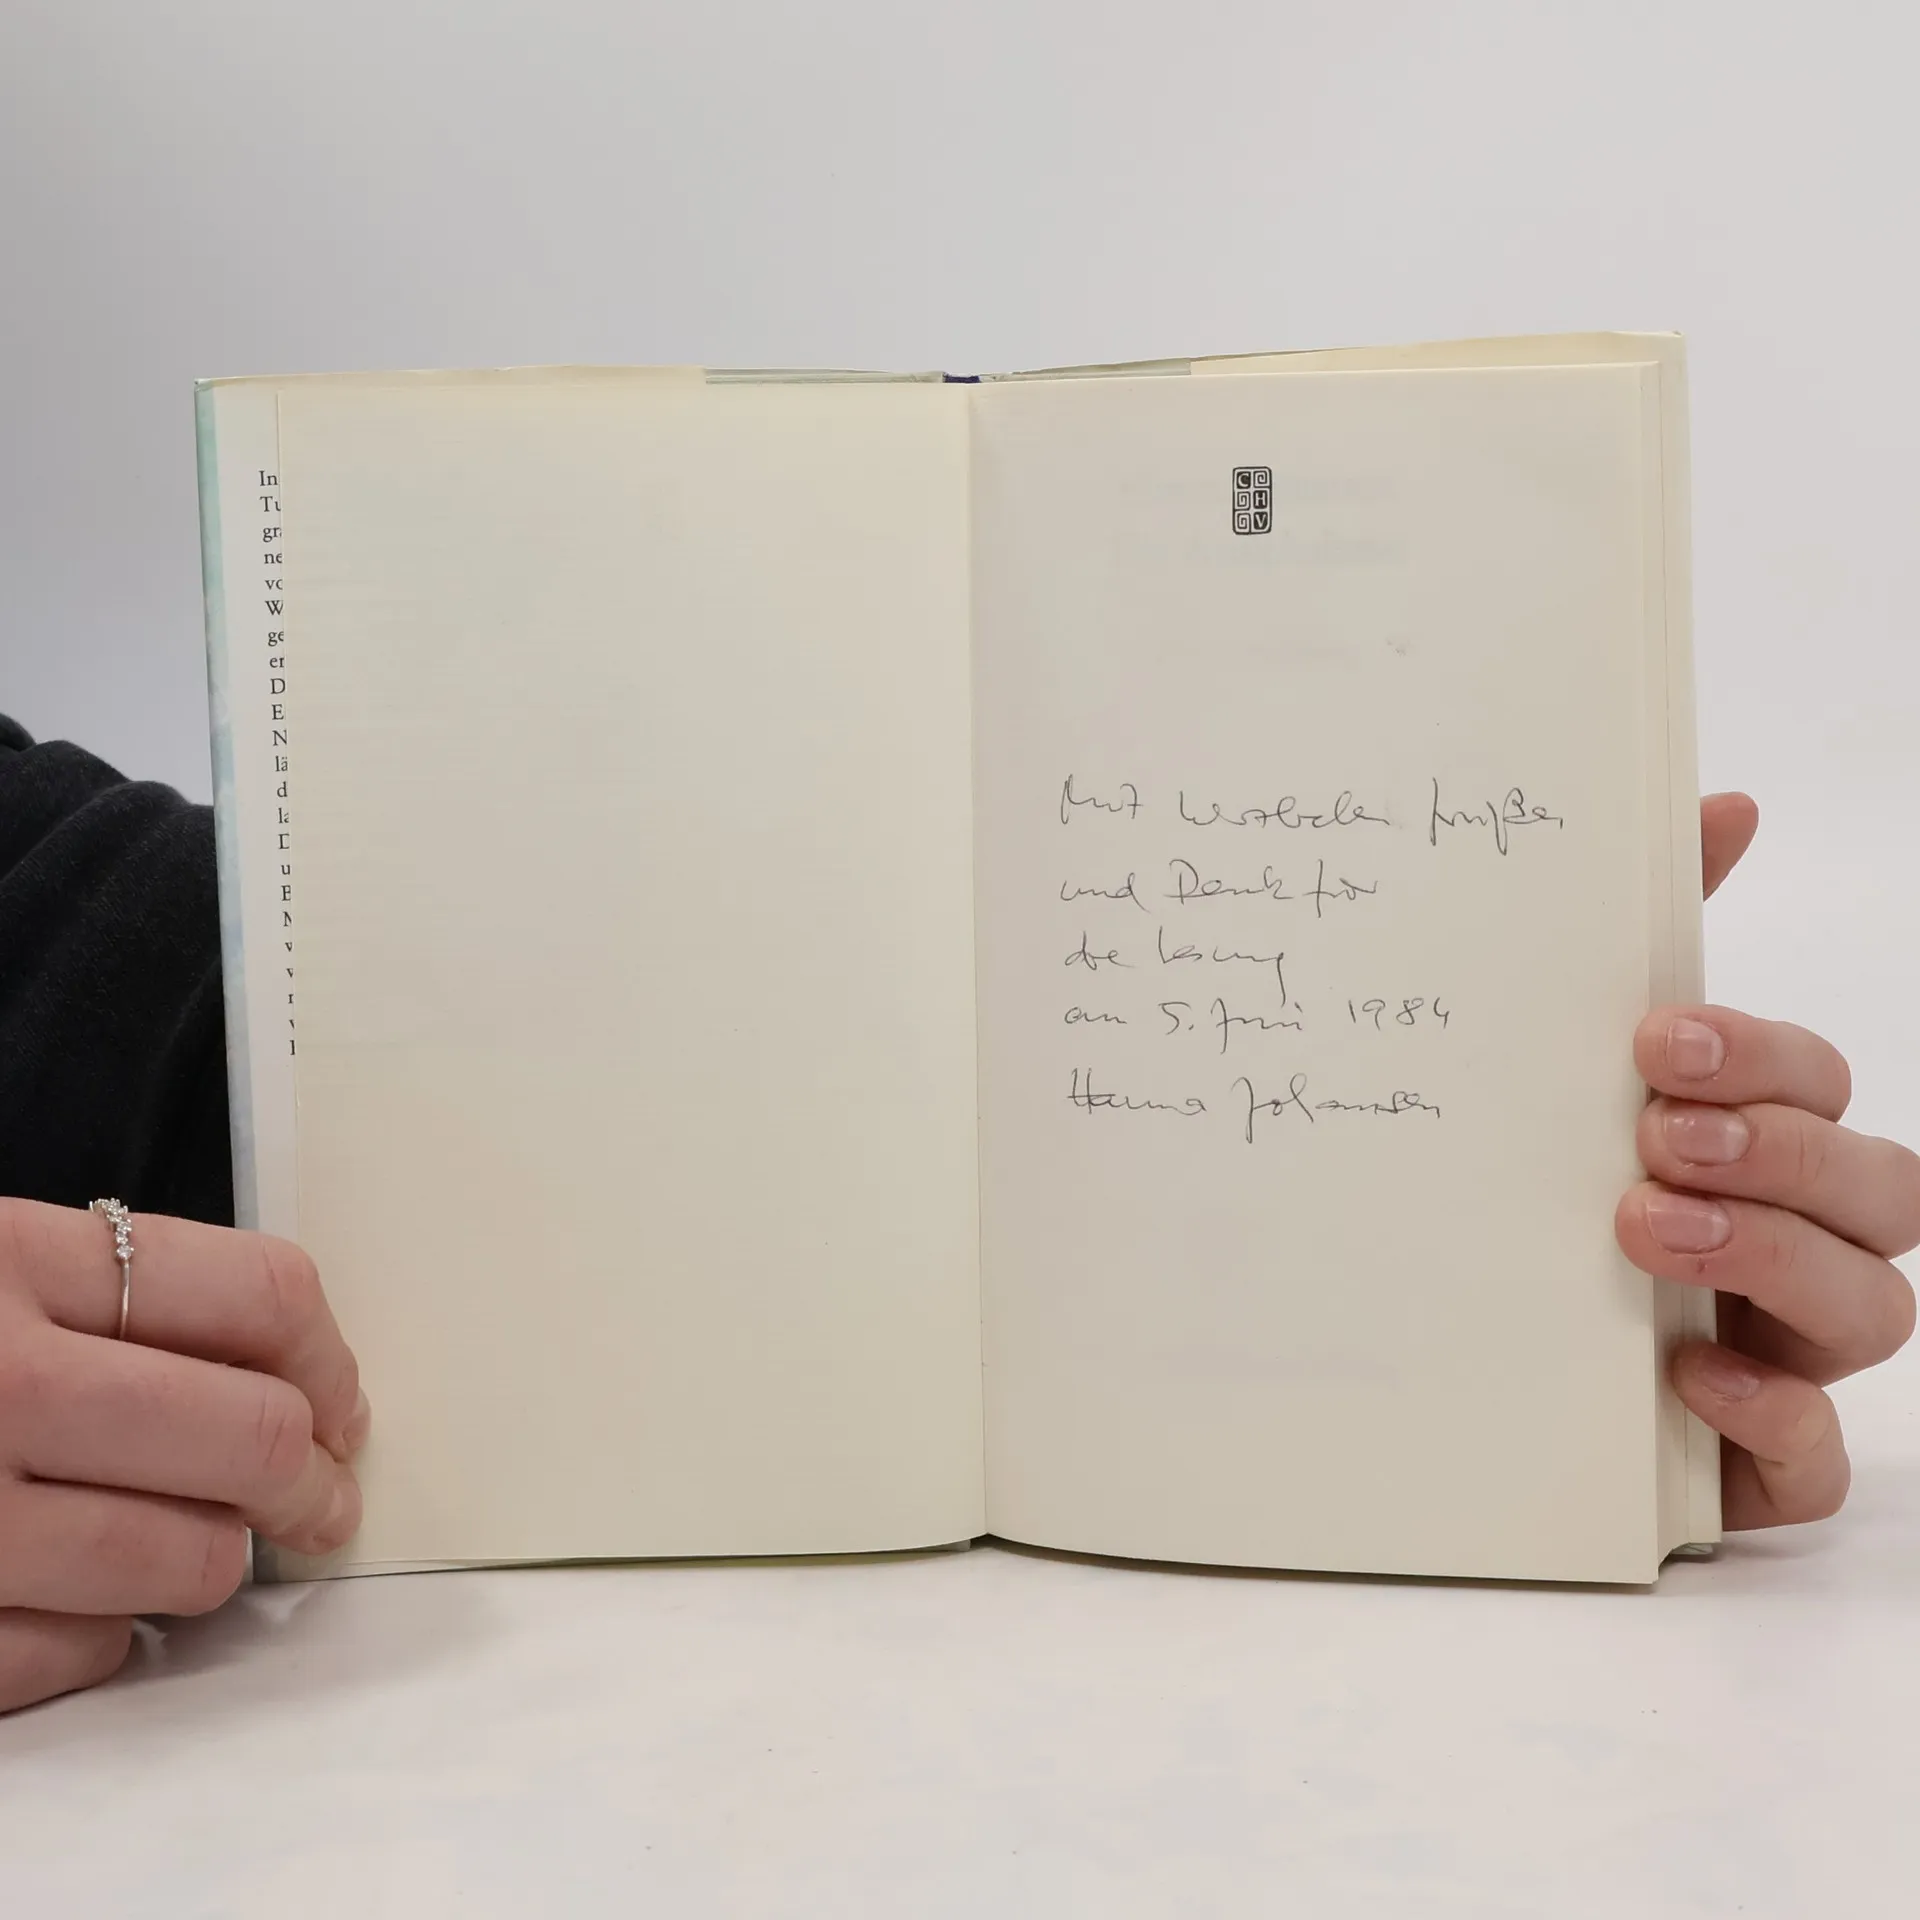 In
Tu
gra
ne
vo
W
ge
er
D
E
N
lä
d
la
D
u
B
M
w
v
r
v
C
H
V
Mit herzlichen Grüßen
und Dank für
die Lesung
am 5. Juni 1984
Hanna Johansen